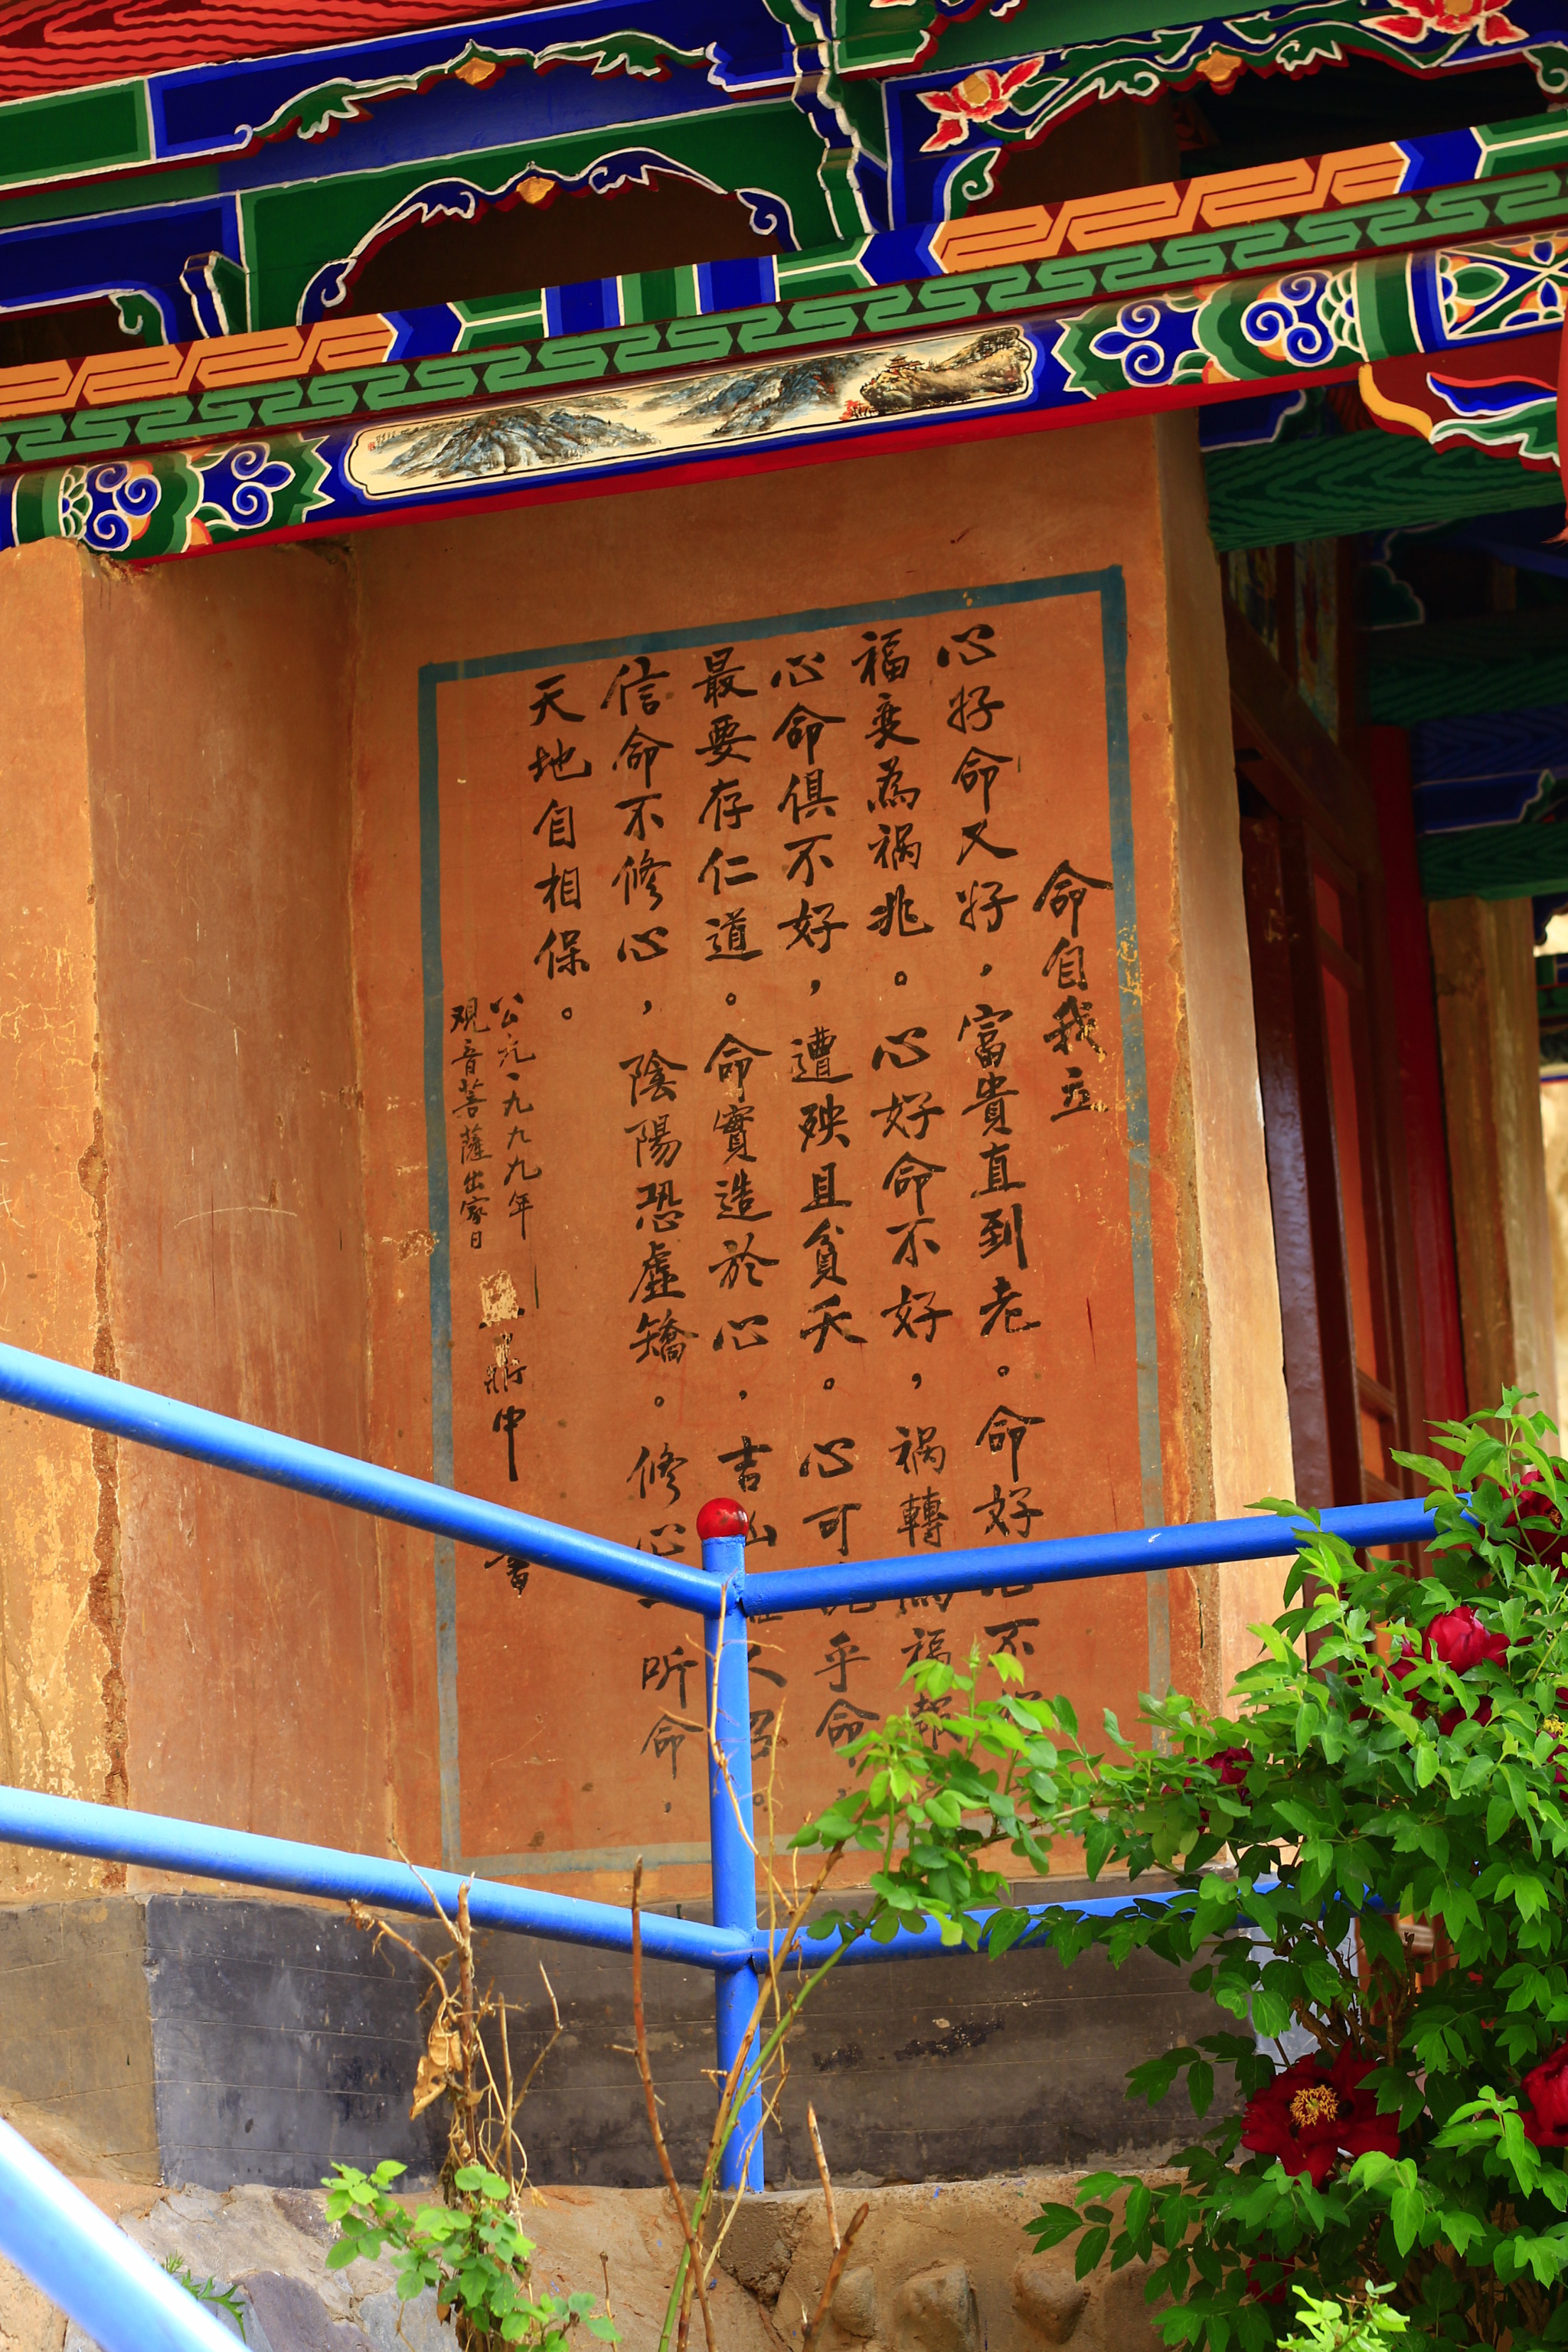 命自我立
心好命又好，富貴直到老。命好心不
福变為祸兆。心好命不好，祸轉為福報
心命俱不好，遭殃且貧夭。心可挽乎命，
最要存仁道。命實造於心，吉凶
信命不修心，陰陽恐虛矯。修心一听命，
天地自相保。
公元一九九九年
观音菩薩出家日
中
書